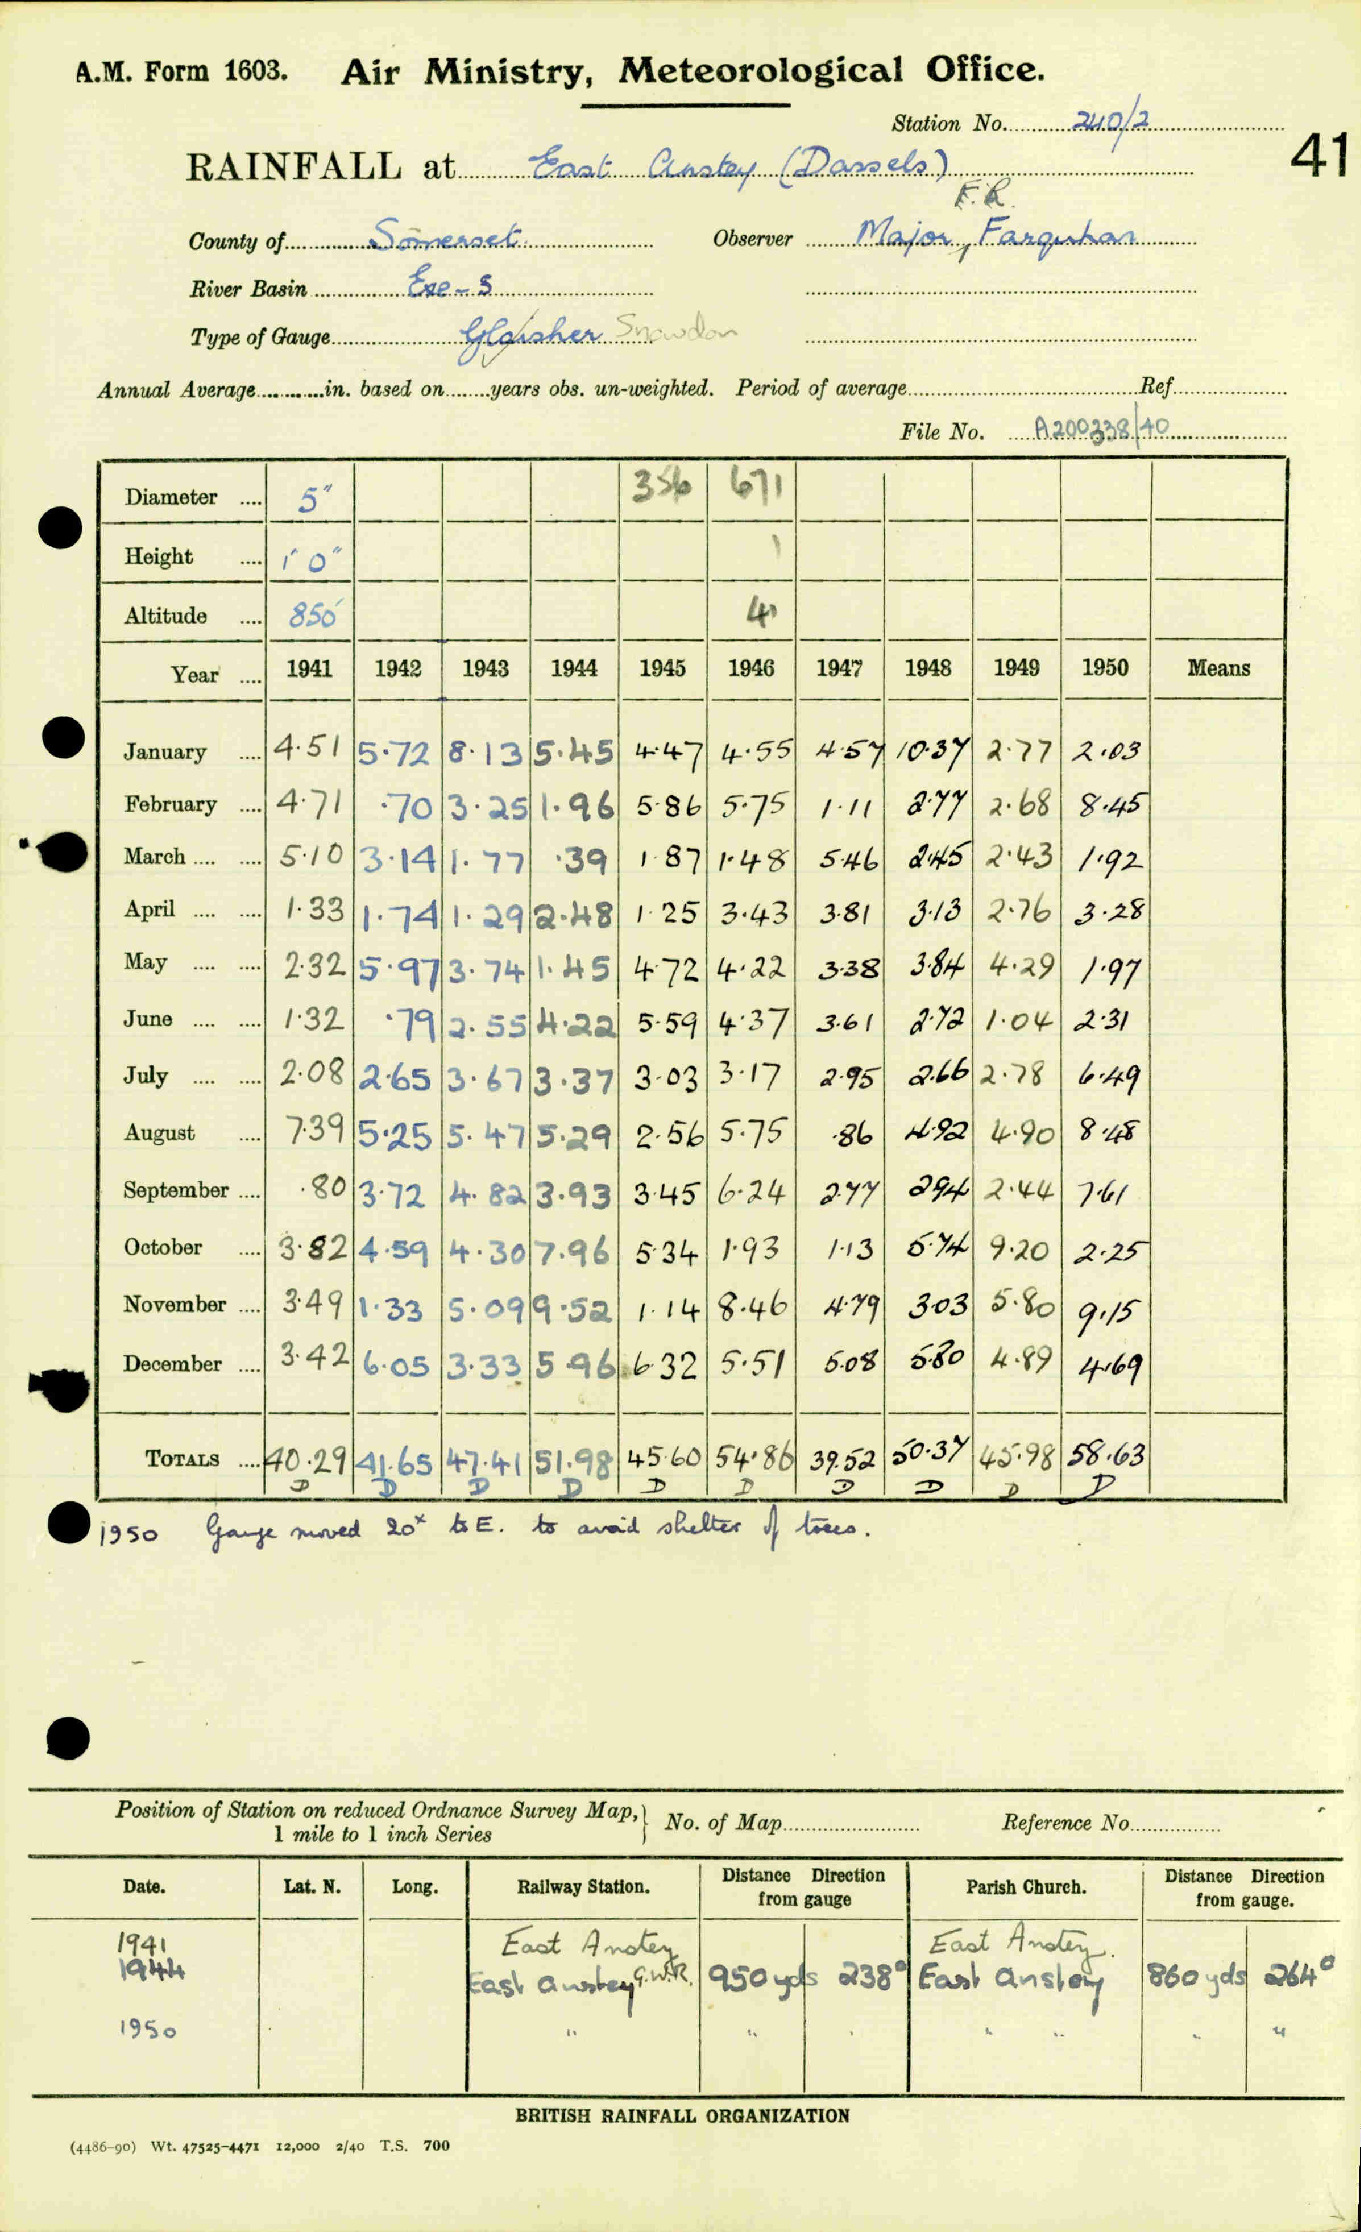 A.M. Form 1603. Air Ministry, Meteorological Office.
Station No. 240/2
41
RAINFALL at East Anstey (Dassels)
F.R.
County of Somerset. Observer Major, Farquhar
River Basin Exe - S
Type of Gauge Glaisher Snowdon
Annual Average in. based on years obs. un-weighted. Period of average Ref
File No. A200338/40
Diameter 5" 356 671
Height 1' 0" 1
Altitude 850' 41
Year 1941 1942 1943 1944 1945 1946 1947 1948 1949 1950 Means
January 4.51 5.72 8.13 5.45 4.47 4.55 4.57 10.37 2.77 2.03
February 4.71 .70 3.25 1.96 5.86 5.75 1.11 2.77 2.68 8.45
March 5.10 3.14 1.77 .39 1.87 1.48 5.46 2.45 2.43 1.92
April 1.33 1.74 1.29 2.48 1.25 3.43 3.81 3.13 2.76 3.28
May 2.32 5.97 3.74 1.45 4.72 4.22 3.38 3.84 4.29 1.97
June 1.32 .79 2.55 4.22 5.59 4.37 3.61 2.72 1.04 2.31
July 2.08 2.65 3.67 3.37 3.03 3.17 2.95 2.66 2.78 6.49
August 7.39 5.25 5.47 5.29 2.56 5.75 .86 4.92 4.90 8.48
September .80 3.72 4.82 3.93 3.45 6.24 2.77 2.94 2.44 7.61
October 3.82 4.59 4.30 7.96 5.34 1.93 1.13 5.74 9.20 2.25
November 3.49 1.33 5.09 9.52 1.14 8.46 4.79 3.03 5.80 9.15
December 3.42 6.05 3.33 5.96 6.32 5.51 5.08 5.80 4.89 4.69
TOTALS 40.29 41.65 47.41 51.98 45.60 54.86 39.52 50.37 45.98 58.63
D D D D D D D D D D
1950 Gauge moved 20x to E. to avoid shelter of trees.
Position of Station on reduced Ordnance Survey Map, 1 mile to 1 inch Series No. of Map Reference No
Date. Lat. N. Long. Railway Station. Distance Direction from gauge Parish Church. Distance Direction from gauge.
1941 East Anstey East Anstey.
1944 East Anstey G.W.R. 950 yds 238° East Anstey 860 yds 264°
1950 " " " " " " "
BRITISH RAINFALL ORGANIZATION
(4486-90) Wt. 47525-4471 12,000 2/40 T.S. 700